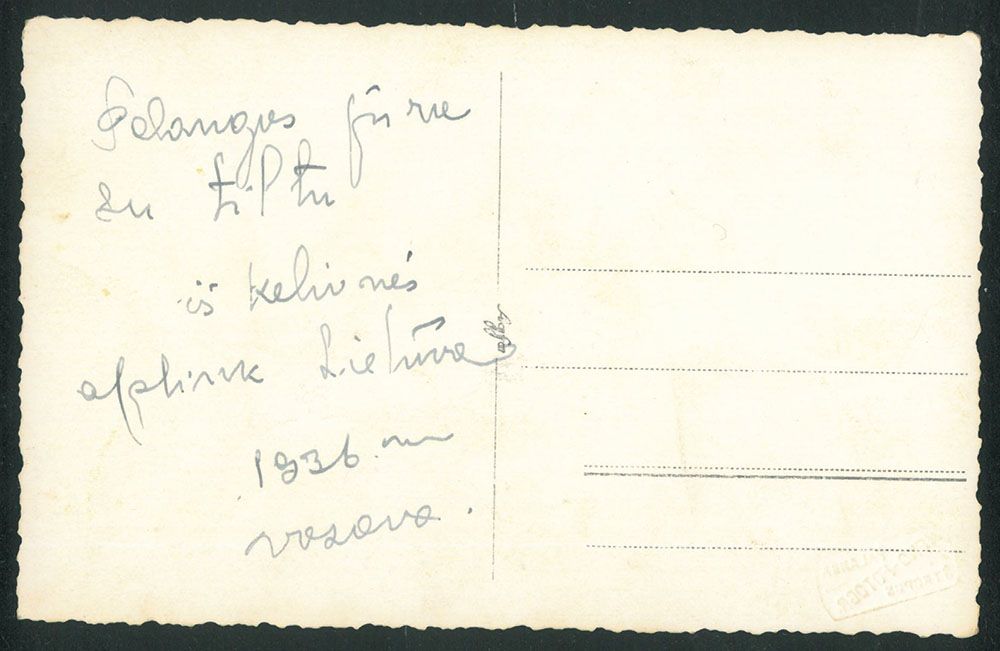 Palangos jūra
su tiltu
iš kelionės
aplink Lietuvą
1936 m
vasara.